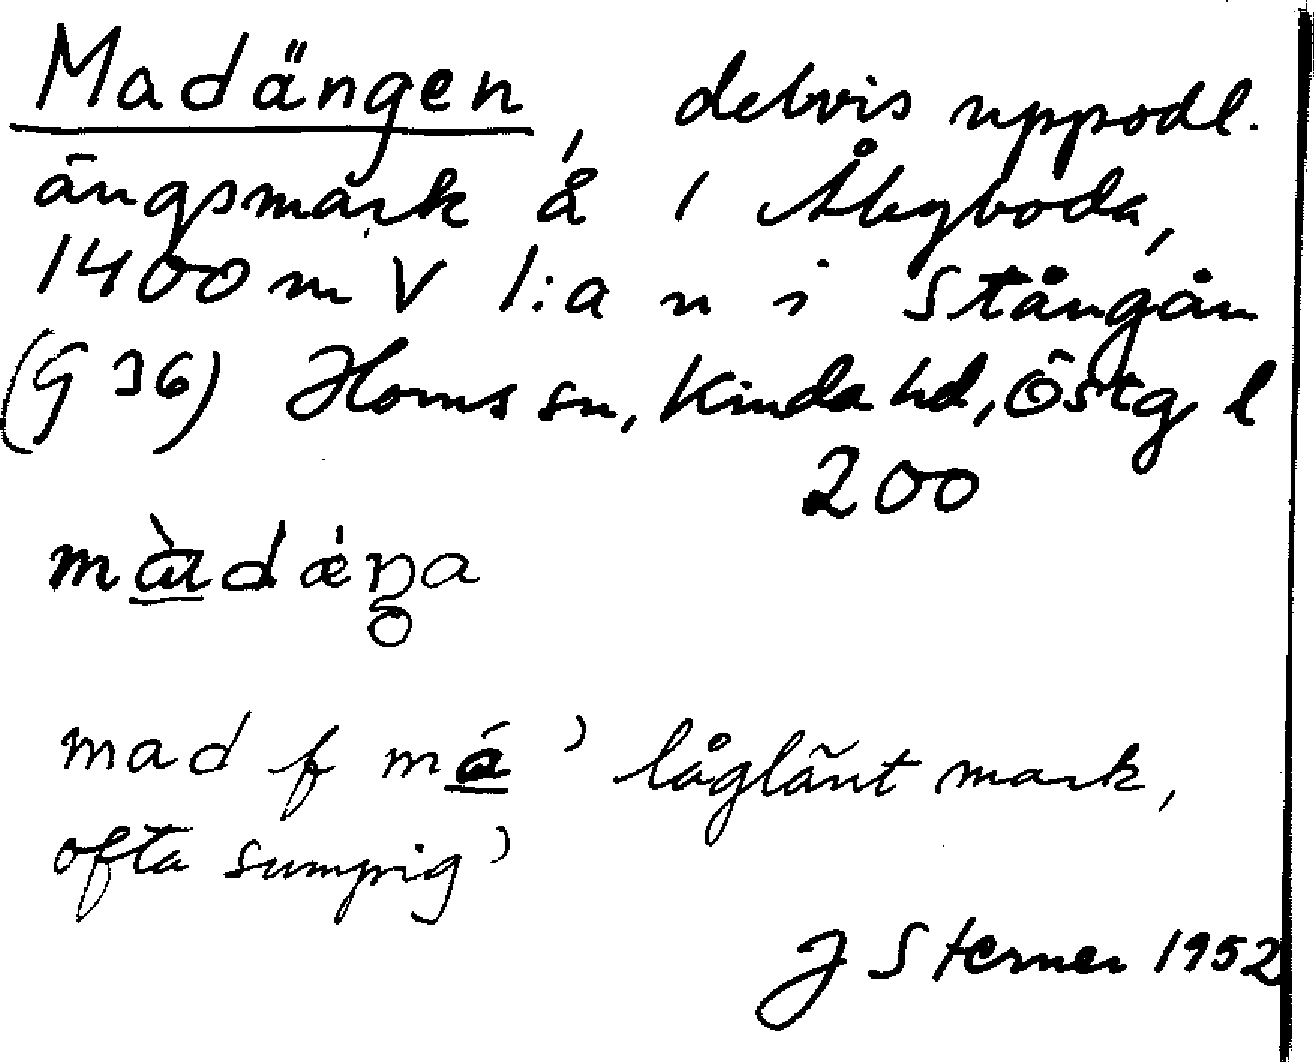 Madängen, delvis uppodl.
ängsmark å 1 Åbyboda,
1400 m V 1:a n i Stångån
(G 36) Horns sn, Kinda hd, Östg l
200
mad f má ’låglänt mark,
ofta sumpig’
J Sterner 1952